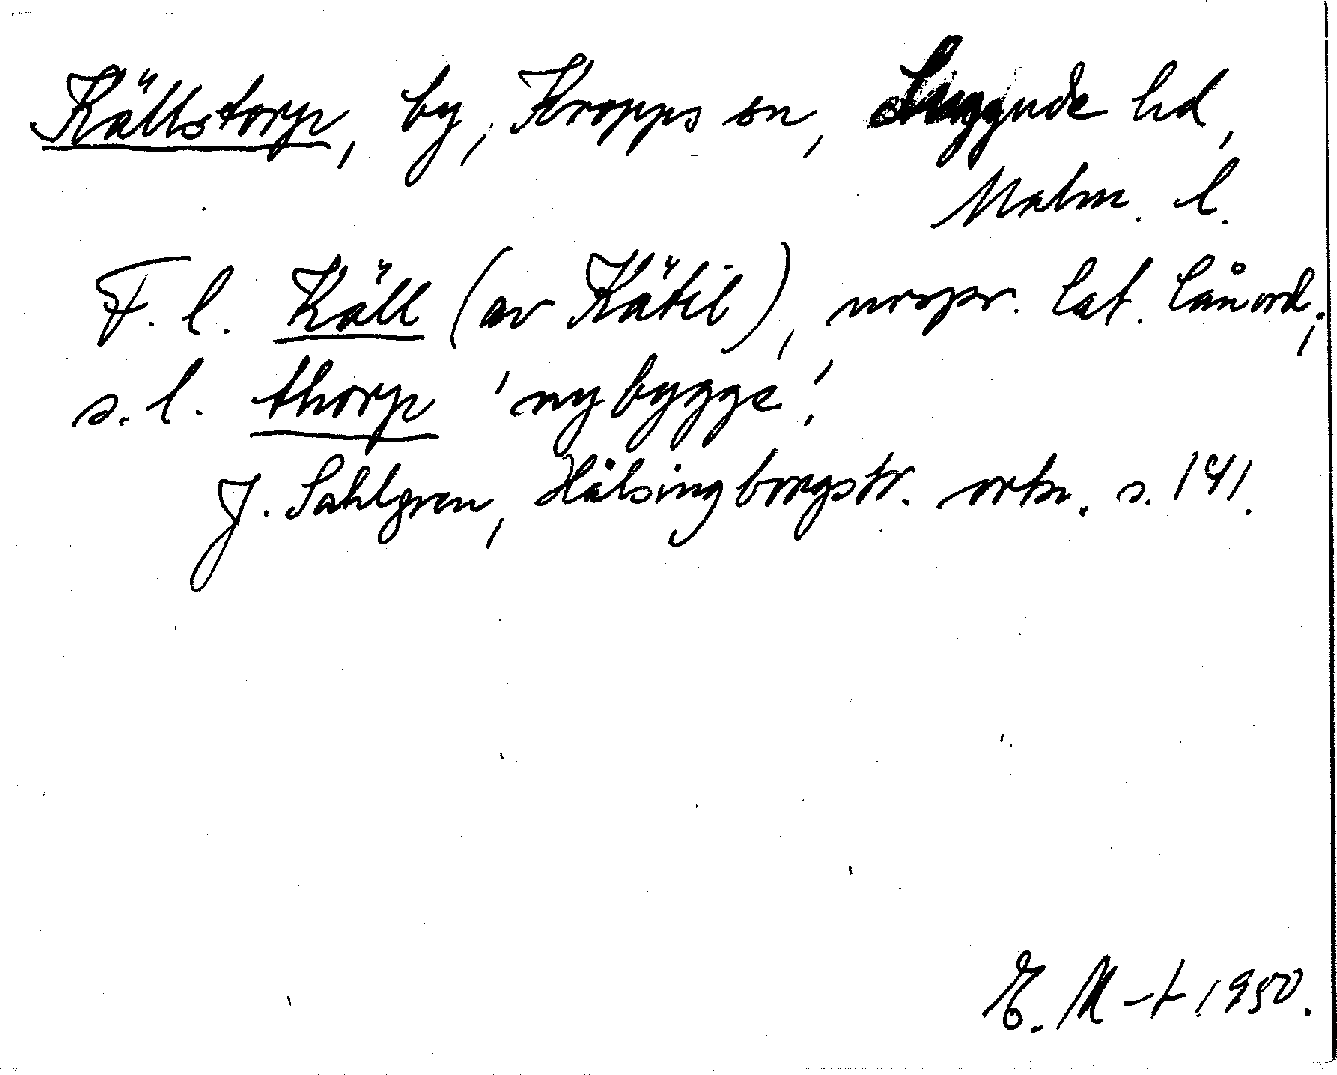 Källstorp, by, Kropps sn, Luggude hd,
Malm. l.
F. l. Käll (av Kätil), urspr. lat. lånord;
s. l. thorp 'nybygge'.
J. Sahlgren, Hälsingborgstr. ortn. s. 141.
E. M-t 1950.